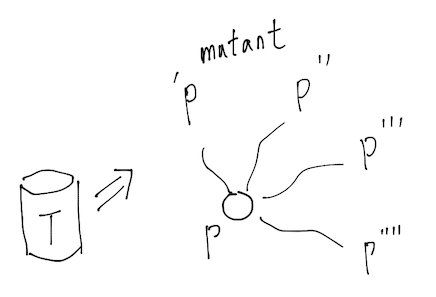 mutant
'p p''
p'''
T
p
p''''